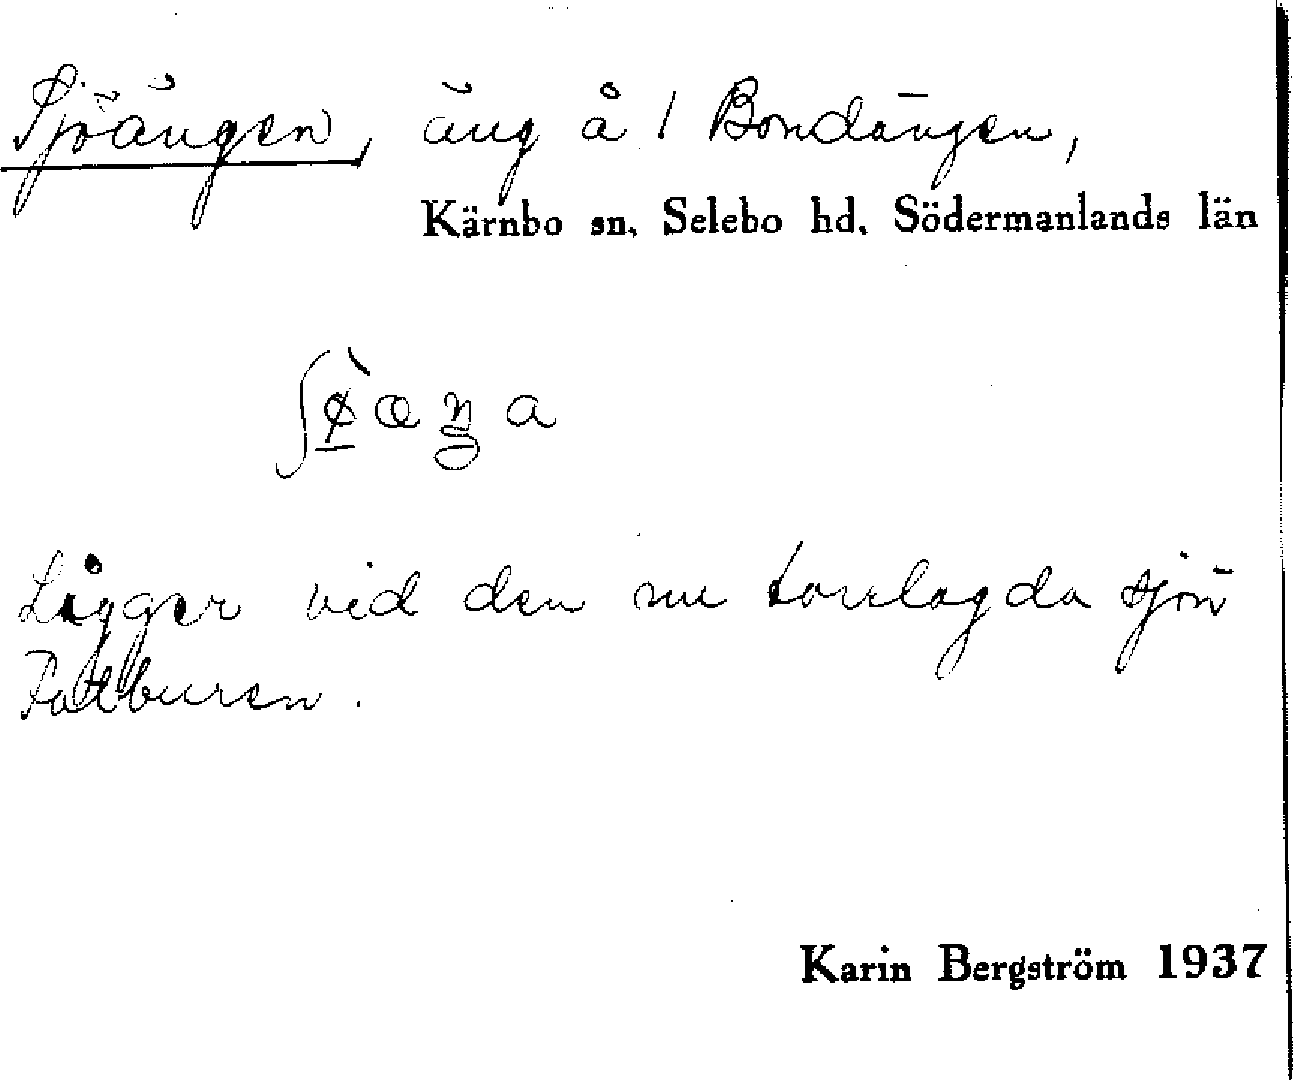 Sjöängen, äng å 1 Bondängen,
Kärnbo sn, Selebo hd, Södermanlands län
Ligger vid den nu torrlagda sjön
Fatburen.
Karin Bergström 1937